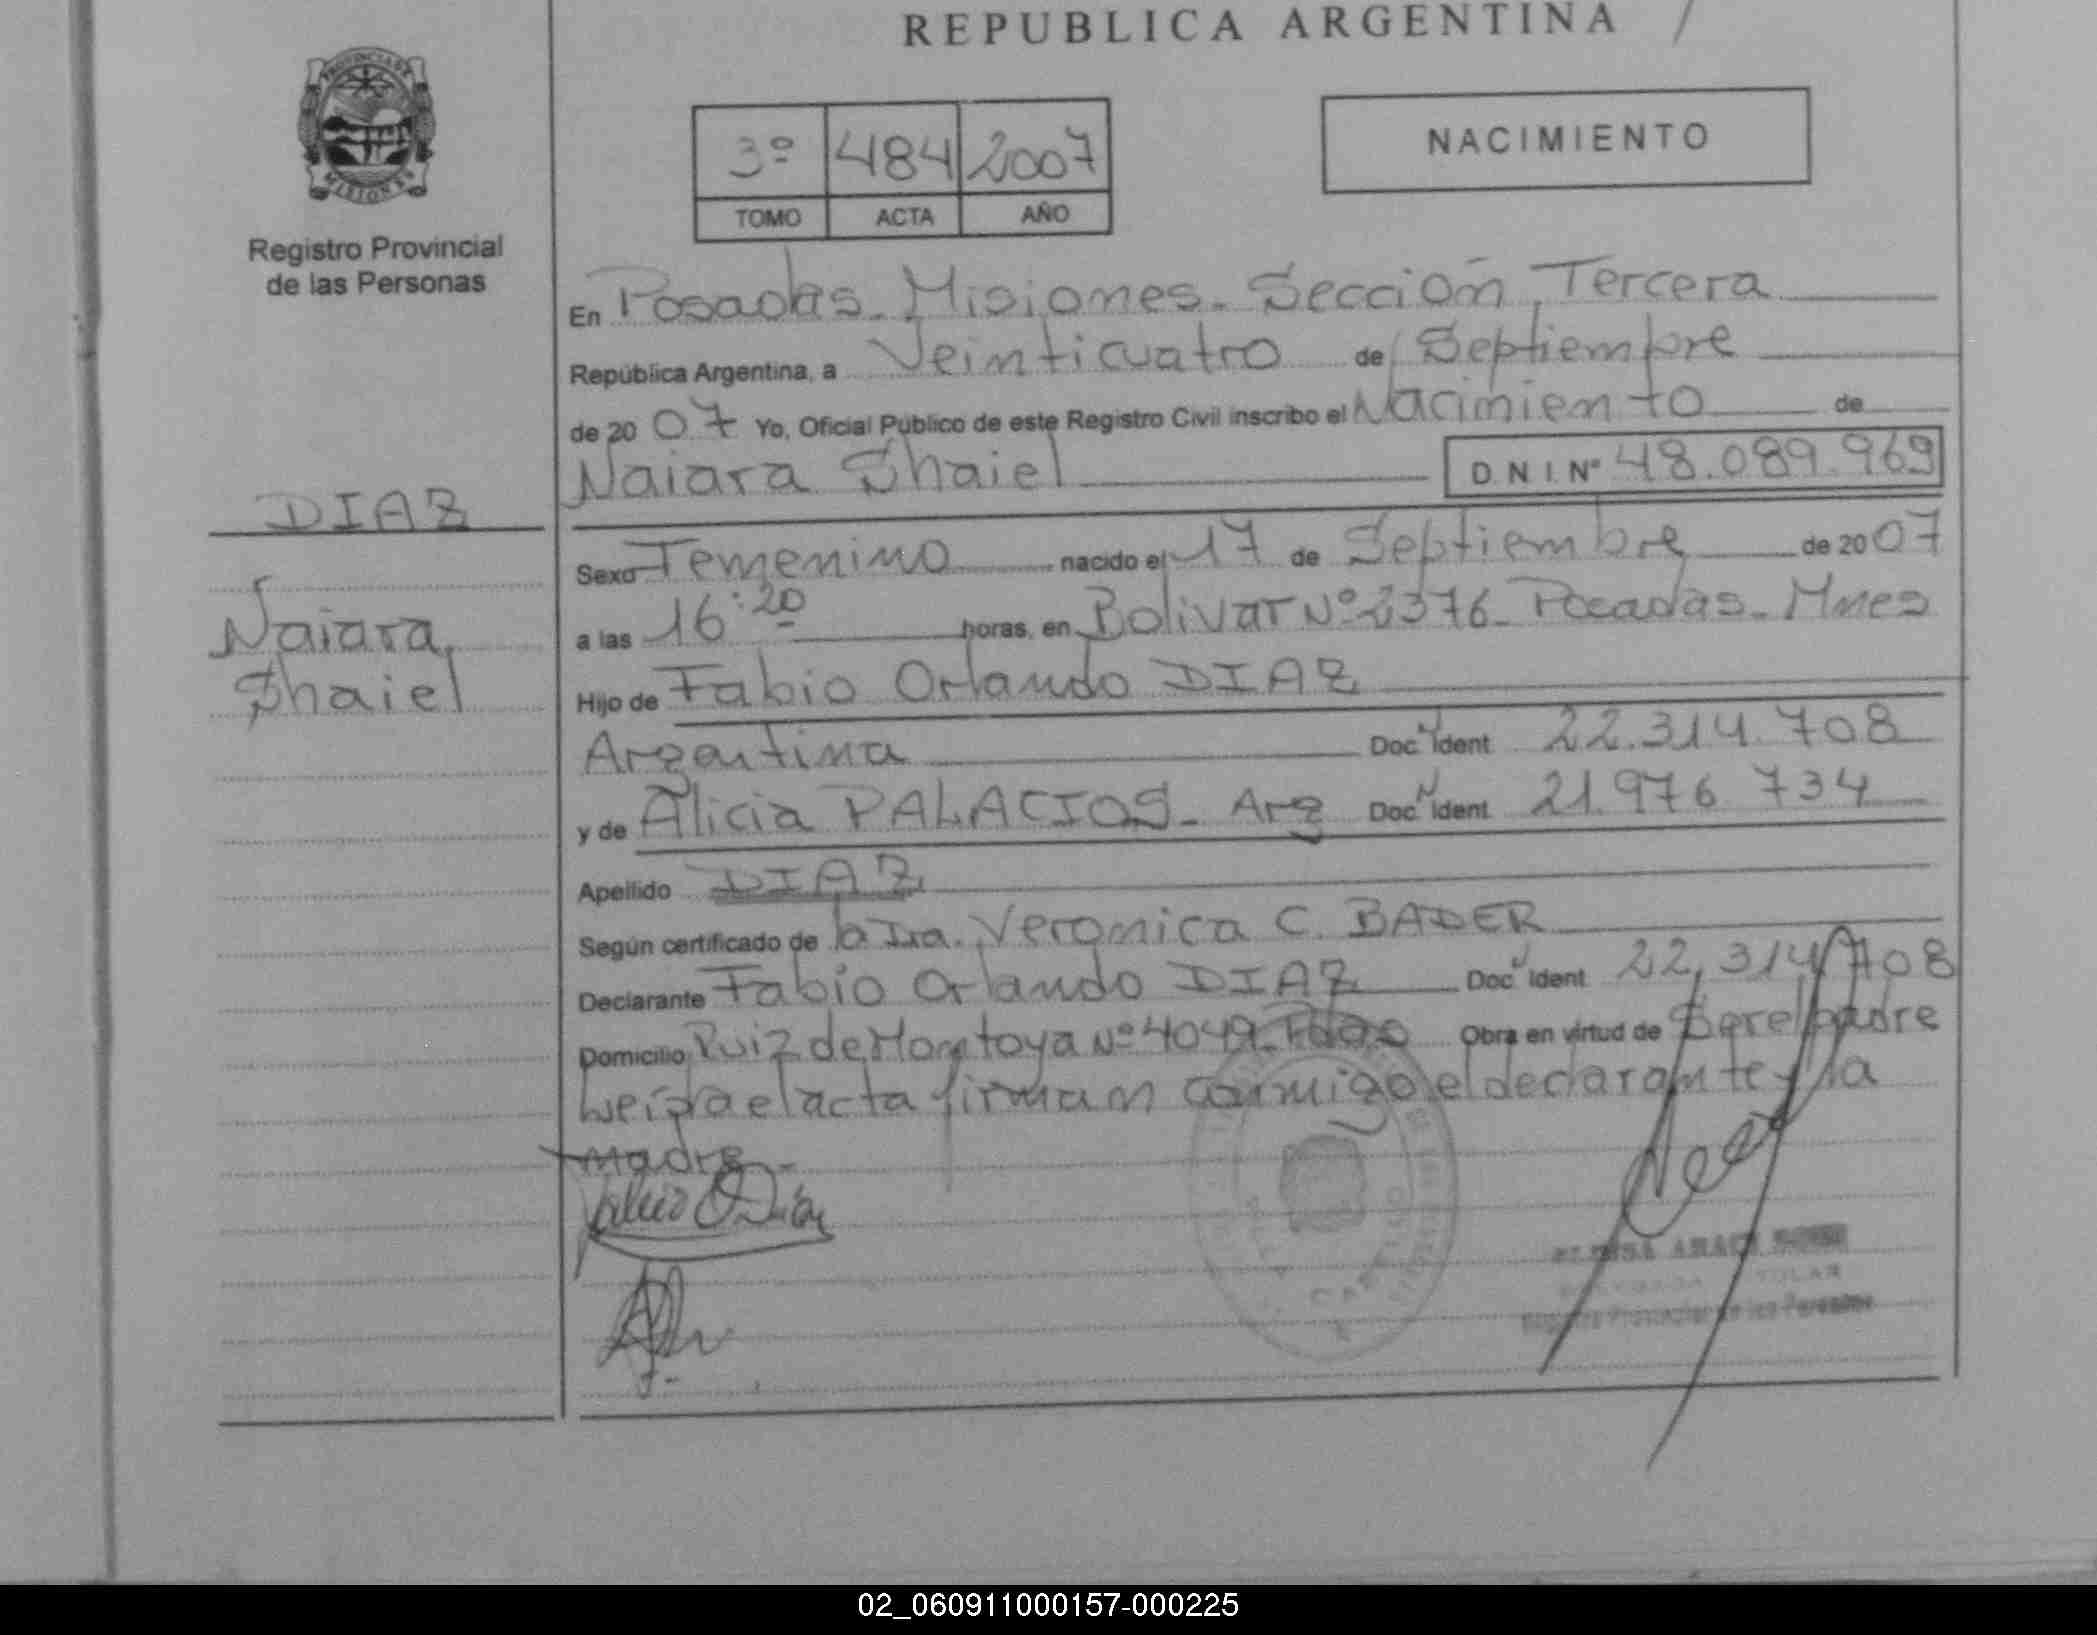 REPUBLICA ARGENTINA
PROVINCIA DE
MISIONES
Registro Provincial
de las Personas
3º 484 2007
TOMO ACTA AÑO
NACIMIENTO
En Posadas - Misiones - Sección Tercera
República Argentina, a Veinticuatro de Septiembre
de 2007 Yo, Oficial Público de este Registro Civil inscribo el Nacimiento de
Naiara Shaiel D N I Nº 48.089.969
DIAZ
Naiara
Shaiel
Sexo Femenino nacido el 17 de Septiembre de 2007
a las 16:20 horas, en Bolivar Nº 2376 - Posadas - Mnes
Hijo de Fabio Orlando DIAZ
Argentina Doc N Ident 22.314.708
y de Alicia PALACIOS - Arg Doc N Ident 21.976.734
Apellido DIAZ
Según certificado de la Dra. Veronica C. BADER
Declarante Fabio Orlando DIAZ Doc N Ident 22.314.708
Domicilio Ruiz de Montoya Nº 4049 - Pdas Obra en virtud de Ser el padre
Leida el acta firman conmigo el declarante y la
madre -
02_060911000157-000225